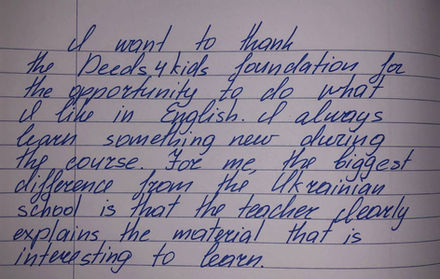 I want to thank
the Deeds4kids foundation for
the opportunity to do what
I like in English. I always
learn something new during
the course. For me, the biggest
difference from the Ukrainian
school is that the teacher clearly
explains the material that is
interesting to learn.